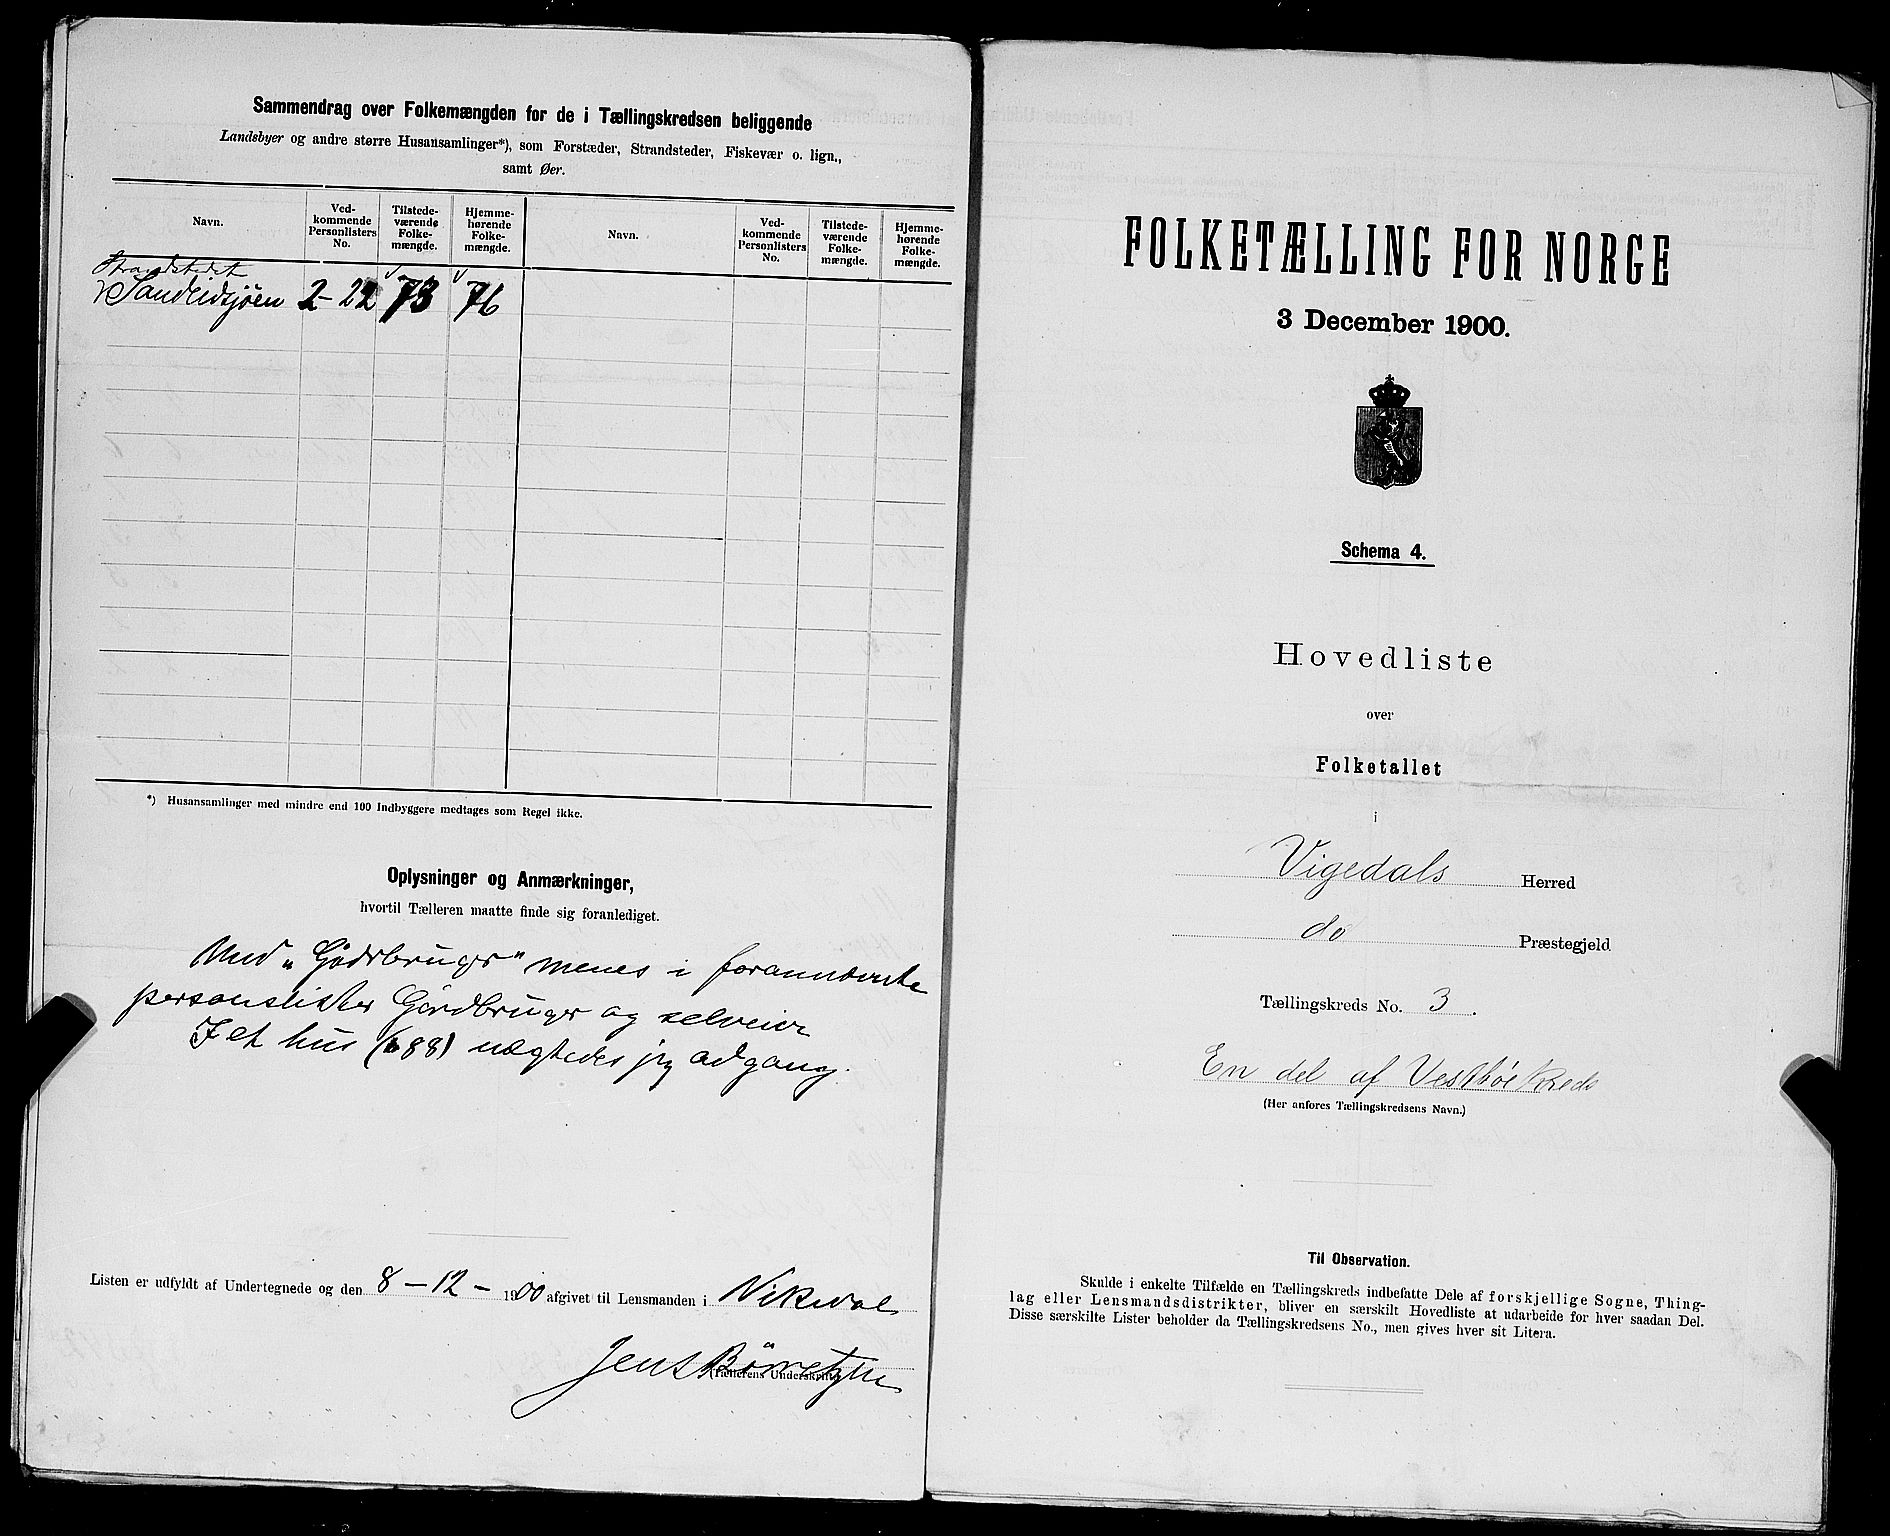 Sammendrag over Folkemængden for de i Tællingskredsen beliggende
Landsbyer og andre større Husansamlinger*), som Forstæder, Strandsteder, Fiskevær o. lign.,
samt Øer.
Navn. Ved-kommende Personlisters No. Tilstede-værende Folke-mængde. Hjemme-hørende Folke-mængde. Navn. Ved-kommende Personlisters No. Tilstede-værende Folke-mængde. Hjemme-hørende Folke-mængde.
Strandstedet
Sandeidsjøen 2-22 73 76
*) Husansamlinger med mindre end 100 Indbyggere medtages som Regel ikke.
Oplysninger og Anmærkninger,
hvortil Tælleren maatte finde sig foranlediget.
Med „Gårdbruger" menes i forannævnte
personslister Gårdbruger og selveier
I et hus (688) nægtedes jeg adgang.
Listen er udfyldt af Undertegnede og den 8-12- 1900 afgivet til Lensmanden i Vikedal
Jens
Tællerens Underskrift
FOLKETÆLLING FOR NORGE
3 December 1900.
Schema 4.
Hovedliste
over
Folketallet
i
Vigedals Herred
do Præstegjeld
Tællingskreds No. 3.
En del af Vestbøe kreds
(Her anføres Tællingskredsens Navn.)
Til Observation.
Skulde i enkelte Tilfælde en Tællingskreds indbefatte Dele af forskjellige Sogne, Thing-
lag eller Lensmandsdistrikter, bliver en særskilt Hovedliste at udarbeide for hver saadan Del.
Disse særskilte Lister beholder da Tællingskredsens No., men gives hver sit Litera.